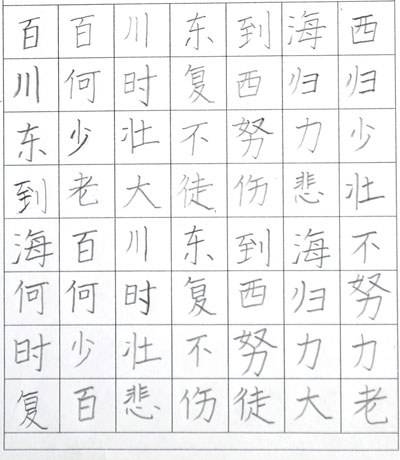 百百川东到海西
川何时复西归归
东少壮不努力少
到老大徒伤悲壮
海百川东到海不
何何时复西归努
时少壮不努力力
复百悲伤徒大老